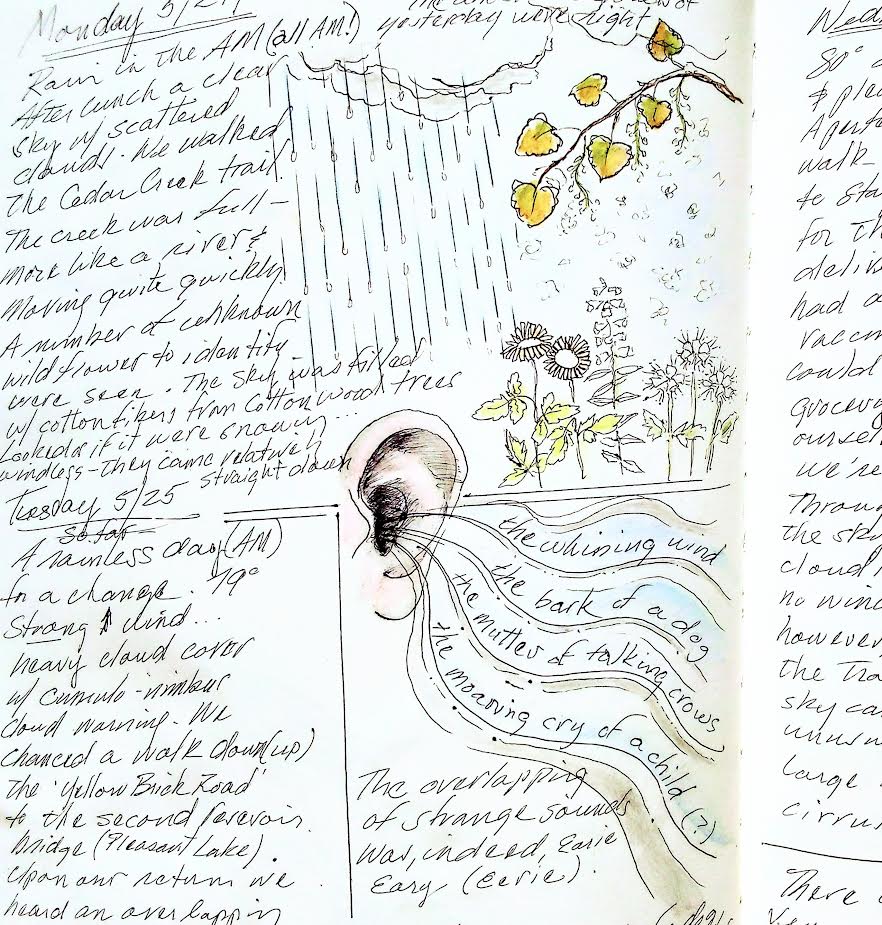 Monday 5/24
yesterday were right
Rain in the AM (all AM!)
After lunch a clear
sky w/ scattered
clouds. We walked
the Cedar Creek trail.
The creek was full -
more like a river &
moving quite quickly
A number of unknown
wildflower to identify
were seen. The sky was filled
w/ cotton fibers from Cottonwood trees
Looked as if it were snowing...
windless - they came relatively
straight down
Tuesday 5/25
so far
A rainless day (AM)
for a change. 79°
Strong wind...
heavy cloud cover
w/ cumulo-nimbus
cloud warning. We
chanced a walk down (up)
the 'Yellow Brick Road'
to the second
bridge (Pleasant Lake).
Upon our return we
heard an overlapping
the whining wind
the bark of a dog
the mutter of talking crows
the moaning cry of a child (?)
The overlapping
of strange sounds
was, indeed, Earie
Eary (Eerie).
80°
walk-
to
for
had a
could
grocery
we're
the sky
cloud
no wind
however
the
sky
large
There